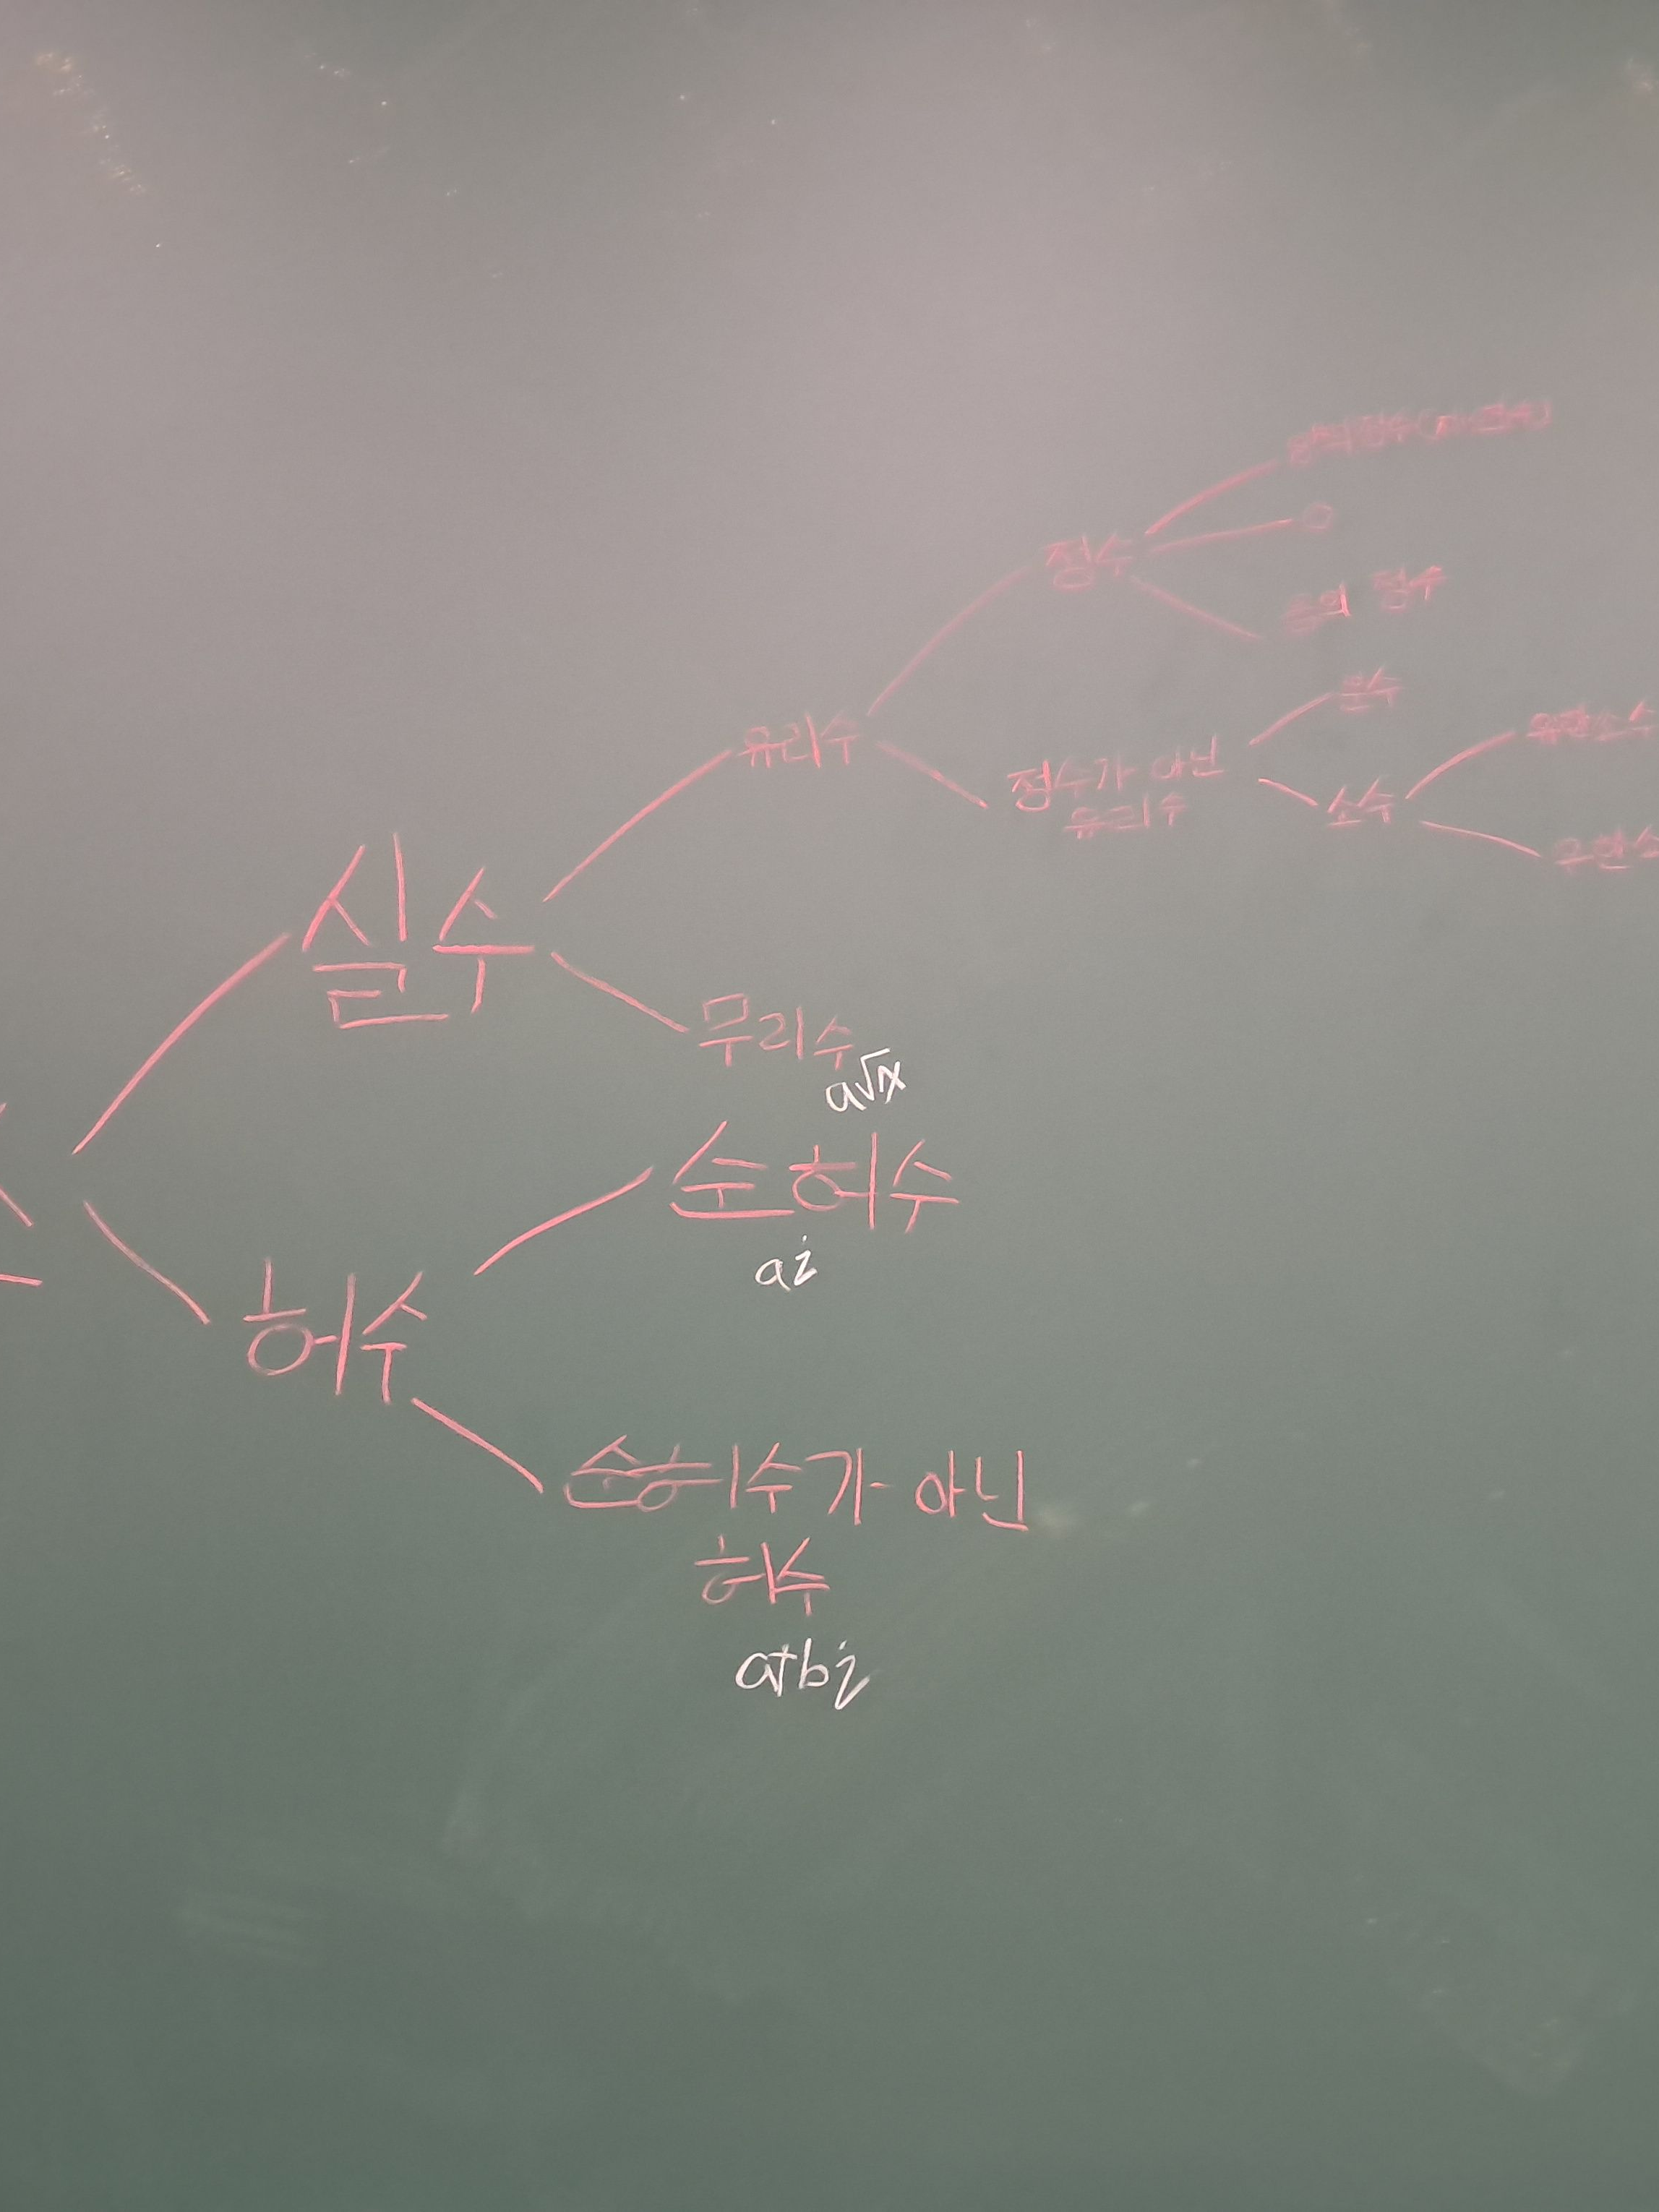 양의 정수(자연수)
0
정수
음의 정수
분수
유리수
유한소수
정수가 아닌
유리수
소수
무한소
실수
무리수
a√x
순허수
ai
허수
순허수가 아닌
허수
a+bi